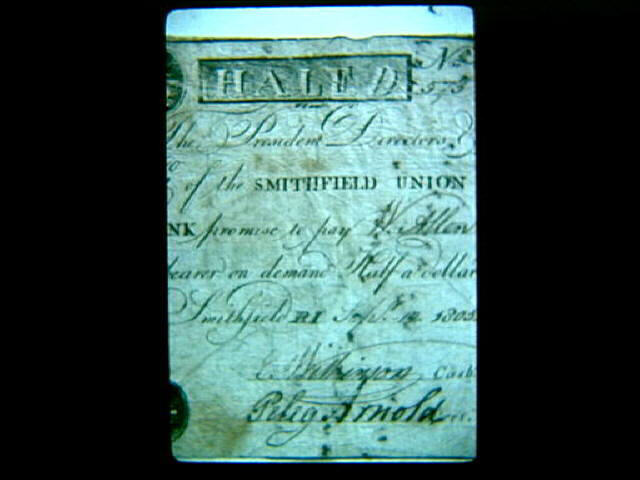 HALF D
No
575
The President Directors &
Co of the SMITHFIELD UNION
NK promise to pay W. Allen
bearer on demand Half a dollar
Smithfield RI Sept. 14. 1805
E. Wilkinson Cash
Peleg Arnold